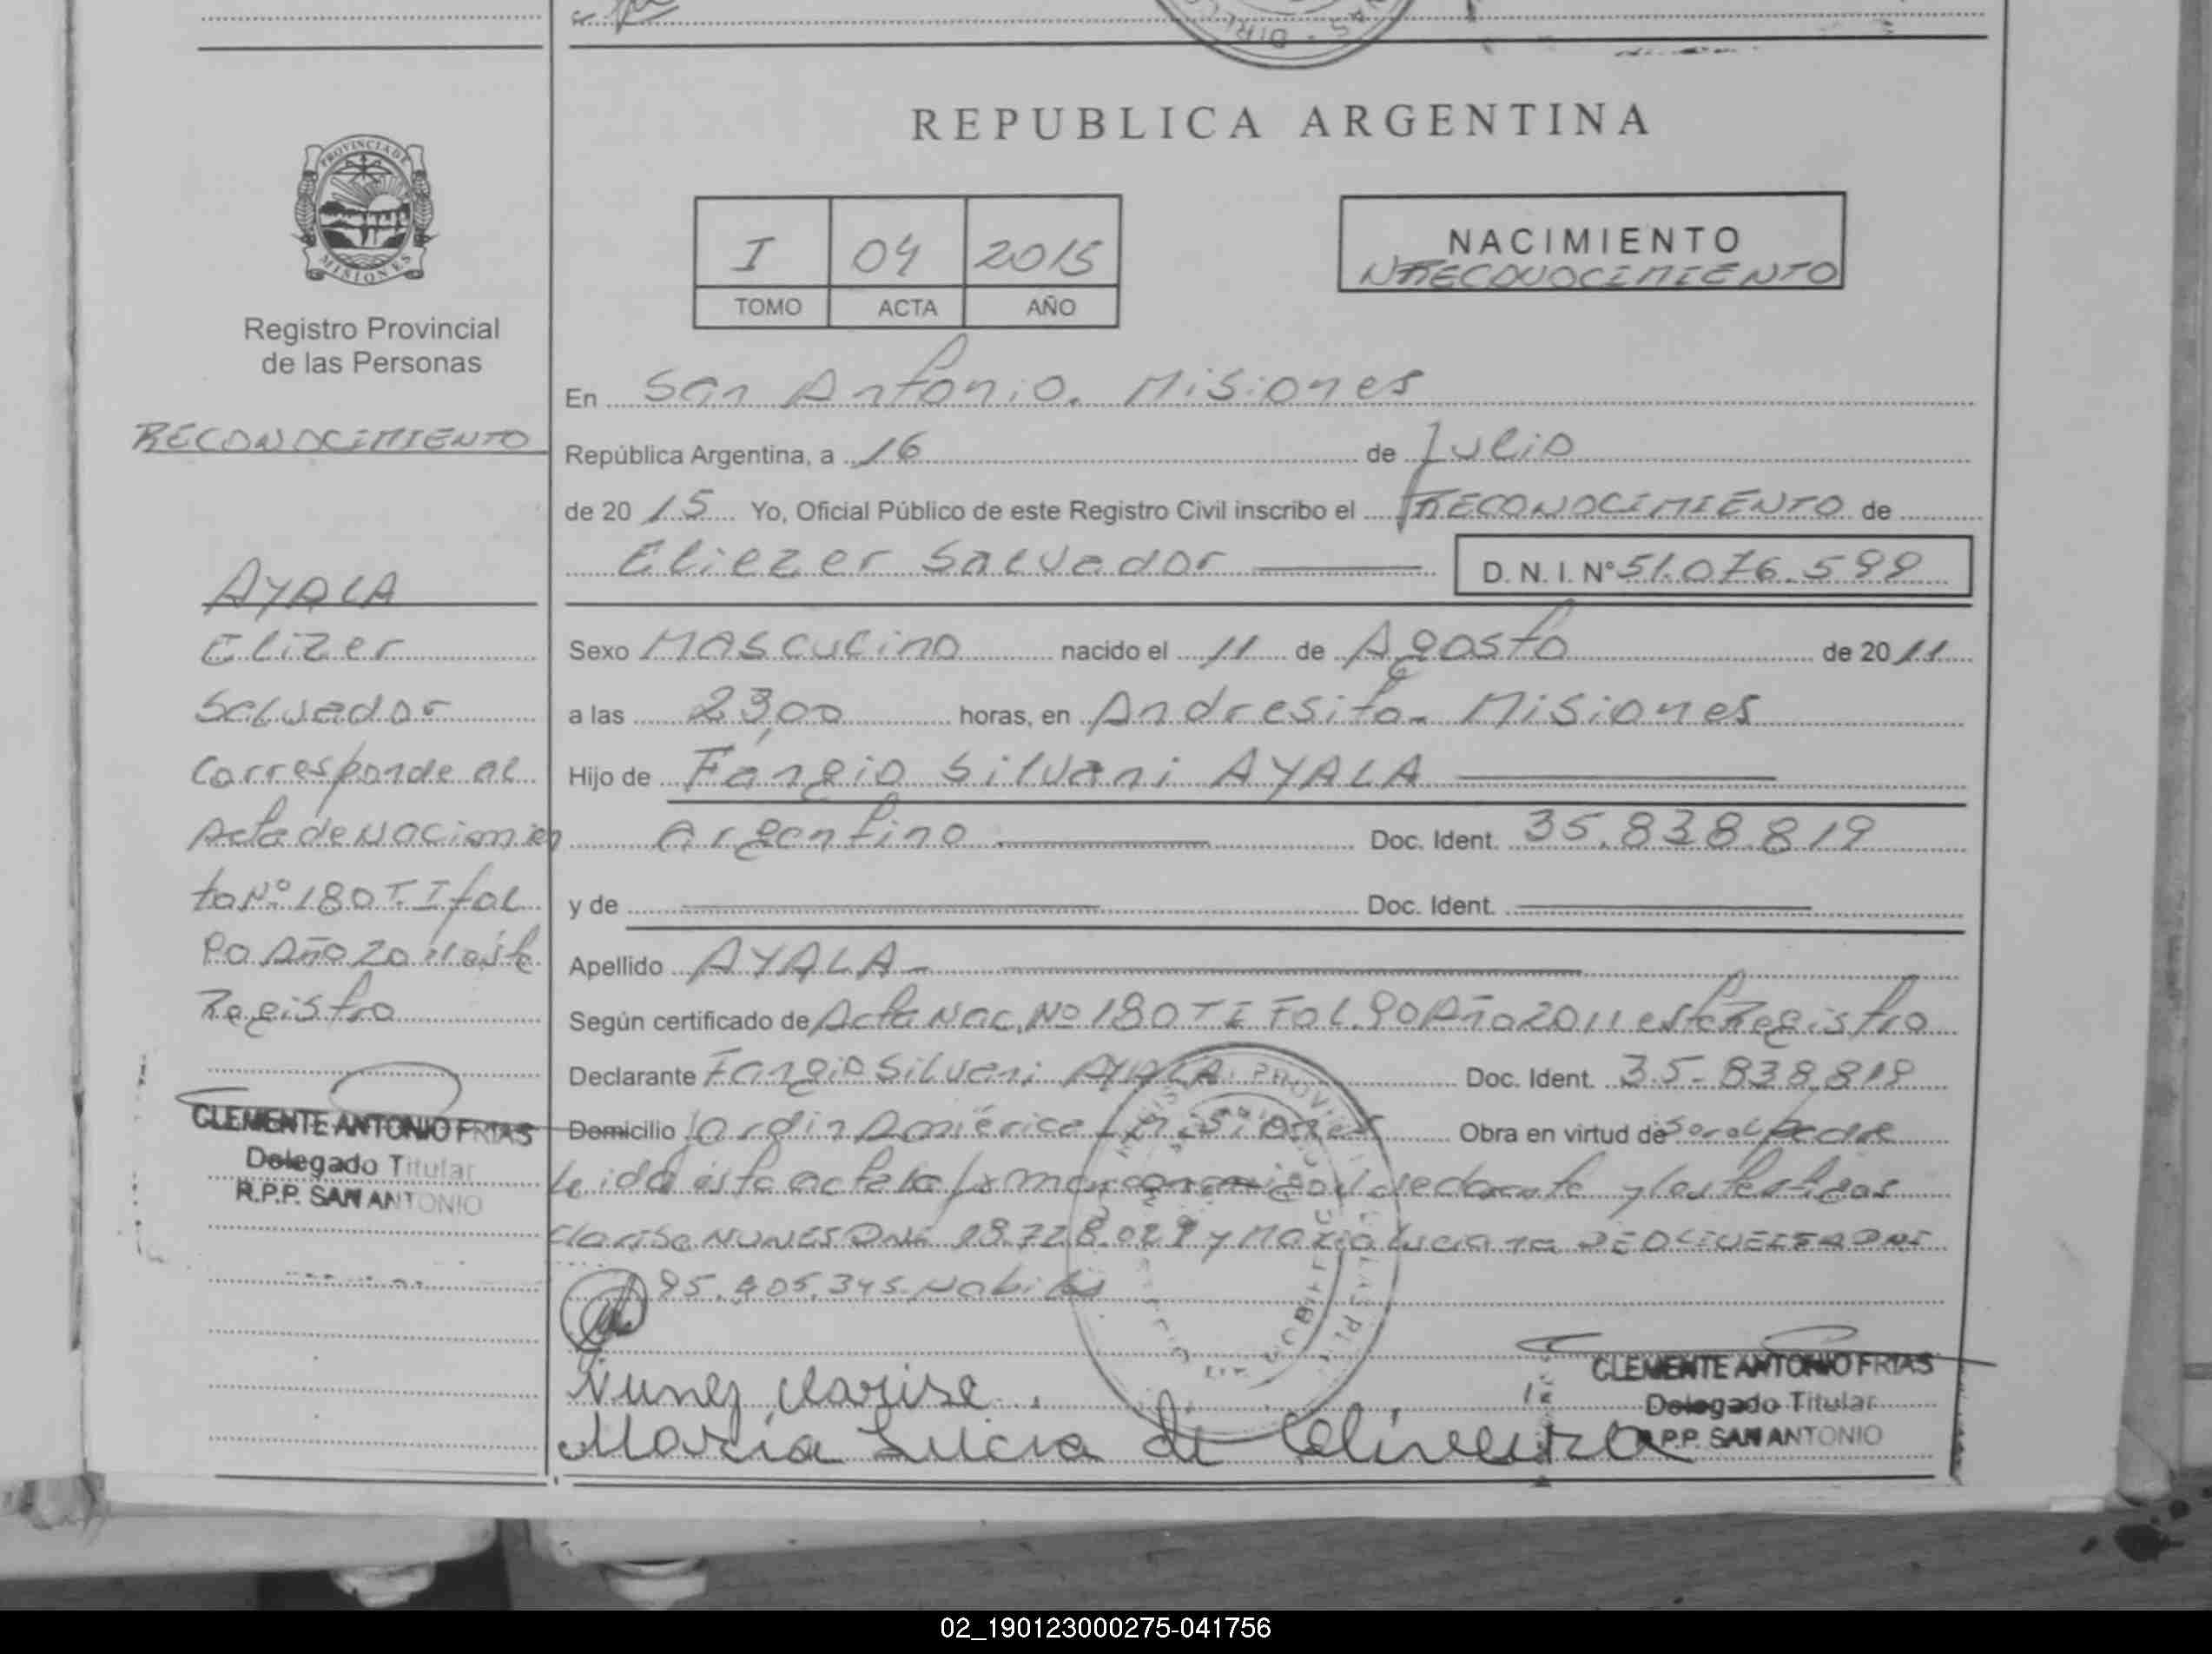 REPUBLICA ARGENTINA
PROVINCIA DE
MISIONES
Registro Provincial
de las Personas
I 04 2015
TOMO ACTA AÑO
NACIMIENTO
RECONOCIMIENTO
RECONOCIMIENTO
AYALA
Elizer
Salvador
Corresponde al
Acta de Nacimien
to Nº 180 T. I fol
90 Año 2011 este
Registro
CLEMENTE ANTONIO FRIAS
Delegado Titular
R.P.P. SAN ANTONIO
En San Antonio. Misiones
República Argentina, a 16 de Julio
de 2015 Yo, Oficial Público de este Registro Civil inscribo el RECONOCIMIENTO de
Eliezer Salvador D.N.I. Nº 51.076.599
Sexo Masculino nacido el 11 de Agosto de 2011
a las 23,00 horas, en Andresito. Misiones
Hijo de Fangio Silvani AYALA
Argentino Doc. Ident. 35.838.819
y de Doc. Ident.
Apellido AYALA
Según certificado de Acta Nac. Nº 180 T I Fol. 90 Año 2011 este Registro
Declarante Fangio Silvani AYALA Doc. Ident. 35.838.819
Domicilio Jardin América Misiones Obra en virtud de ser el padre
Leida esta acta la firman conmigo el declarante y los testigos
Clarise NUNES DNI 18.728.029 y Maria Lucia DE OLIVEIRA DNI
95.405.345
Nunes Clarise
Maria Lucia de Oliveira
CLEMENTE ANTONIO FRIAS
Delegado Titular
R.P.P. SAN ANTONIO
02_190123000275-041756